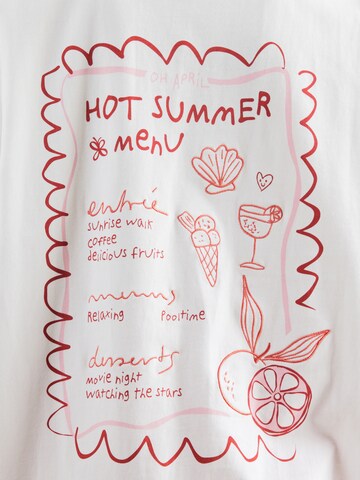 OH APRIL
HOT SUMMER
menu
entrée
sunrise walk
coffee
delicious fruits
Relaxing Pooltime
desserts
movie night
watching the stars